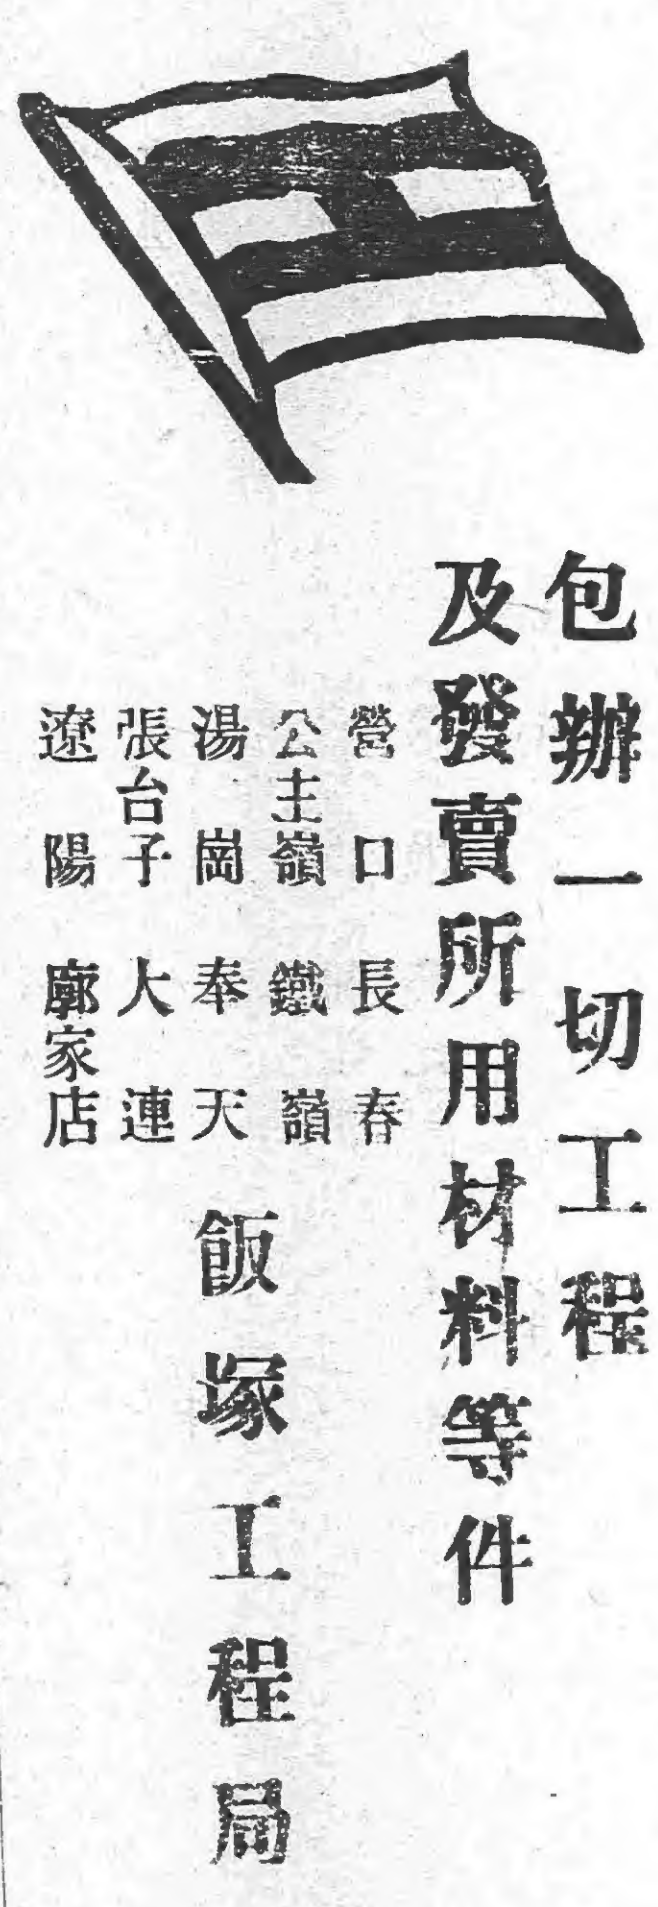 包辦一切工程
及發賣所用材料等件
營口 長春
公主嶺 鐵嶺
湯崗 奉天
張台子 大連
遼陽 廓家店
飯塚工程局